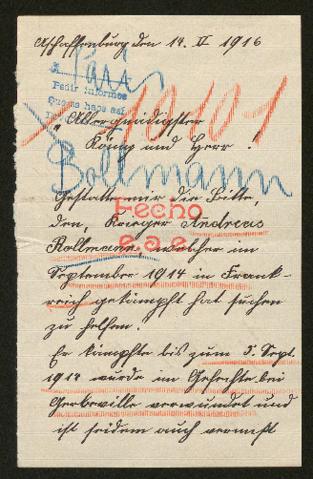 Aschaffenburg den 14. IV 1916
Pedir informes
10101
Allergnädigster
König und Herr!
Bollmann
Gestatten mir die Bitte,
Fecho
den, Krieger Andreas
e a e
Bollmann, welcher im
September 1914 in Frank-
reich gekämpft hat suchen
zu helfen.
Er kämpfte bis zum 5. Sept.
1914 wurde im Gefechte bei
Gerbeville verwundet und
ist seidem auch vermißt